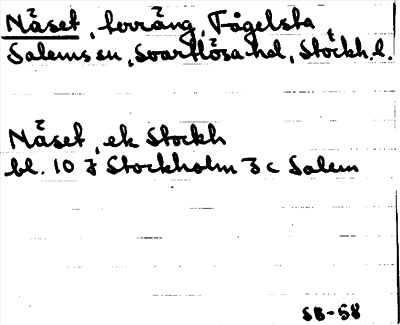 Näset, terräng, Fågelsta,
Salems sn, Svartlösa hd, Stockh. l.
Näset, ek Stockh
bl. 10 I Stockholm 3 c Salem
SB-58